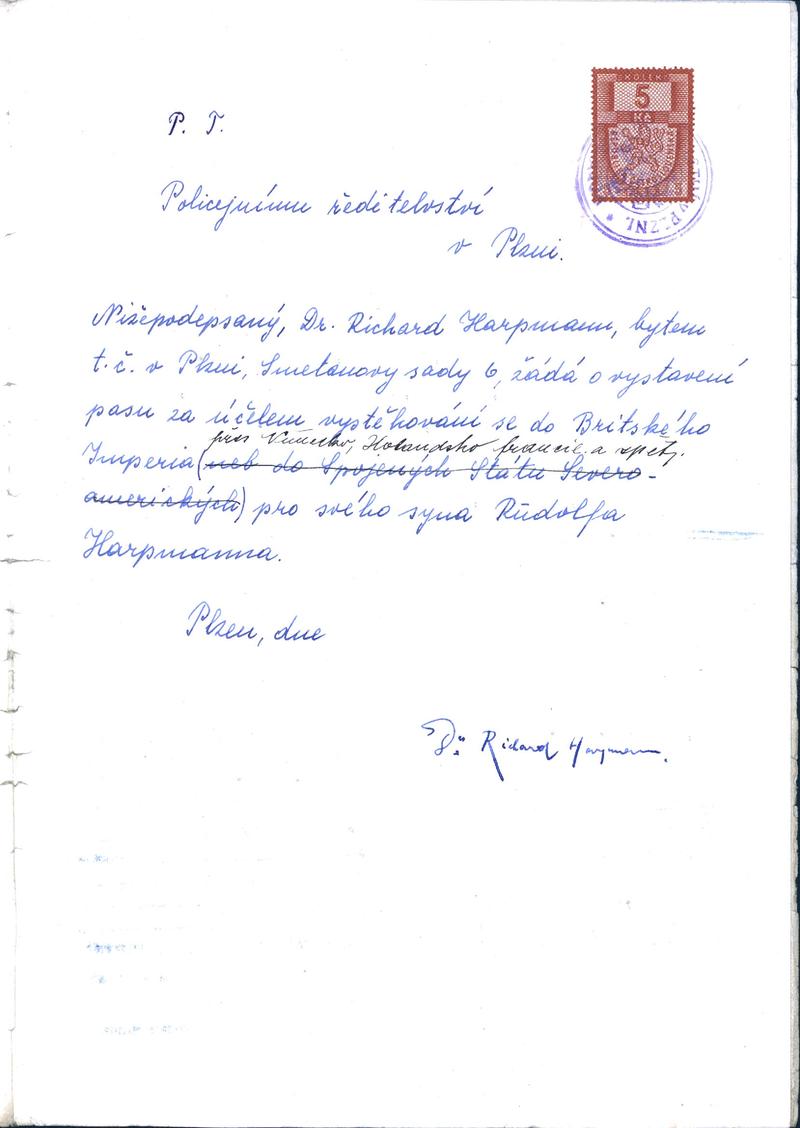 KOLEK
5
Kč
V PLZNI.
P. T.
Policejnímu ředitelství
v Plzni.
Nížepodepsaný, Dr. Richard Harpmann, bytem
t.č. v Plzni, Smetanovy sady 6, žádá o vystavení
pasu za účelem vystěhování se do Britského
přes Německo, Holandsko, Francii a zpět.
Imperia (neb do Spojených Státu Severo-
amerických) pro svého syna Rudolfa
Harpmanna.
Plzeň, dne
Dr. Richard Harpmann.